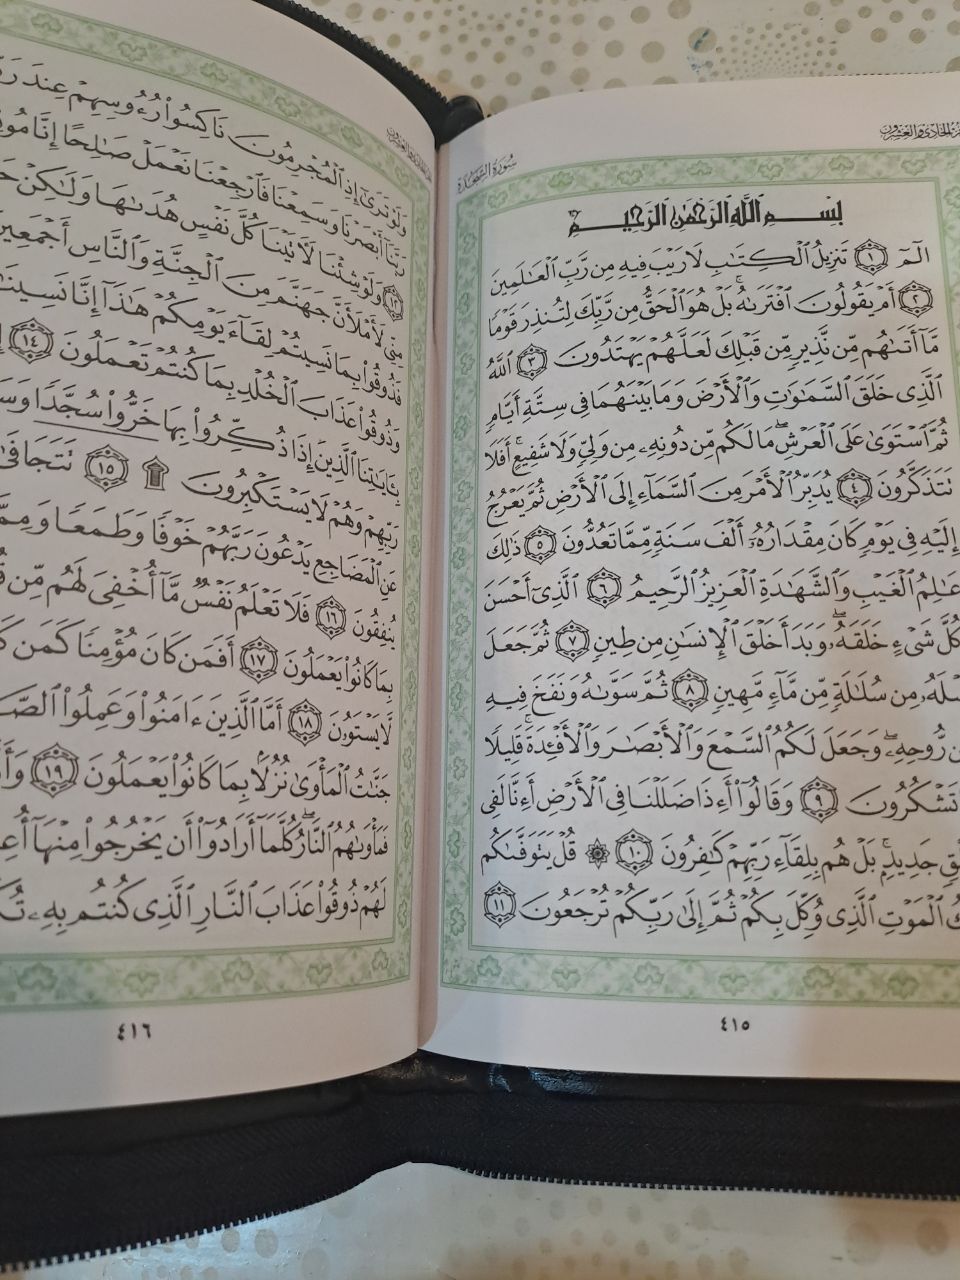 سُورَةُ السَّجْدَةِ
بِسْمِ اللَّهِ الرَّحْمَٰنِ الرَّحِيمِ
الٓمٓ ١ تَنزِيلُ ٱلْكِتَٰبِ لَا رَيْبَ فِيهِ مِن رَّبِّ ٱلْعَٰلَمِينَ
٢ أَمْ يَقُولُونَ ٱفْتَرَىٰهُ ۚ بَلْ هُوَ ٱلْحَقُّ مِن رَّبِّكَ لِتُنذِرَ قَوْمًا
مَّآ أَتَىٰهُم مِّن نَّذِيرٍ مِّن قَبْلِكَ لَعَلَّهُمْ يَهْتَدُونَ ٣ ٱللَّهُ
ٱلَّذِى خَلَقَ ٱلسَّمَٰوَٰتِ وَٱلْأَرْضَ وَمَا بَيْنَهُمَا فِى سِتَّةِ أَيَّامٍ
ثُمَّ ٱسْتَوَىٰ عَلَى ٱلْعَرْشِ ۖ مَا لَكُم مِّن دُونِهِۦ مِن وَلِىٍّ وَلَا شَفِيعٍ ۚ أَفَلَا
تَتَذَكَّرُونَ ٤ يُدَبِّرُ ٱلْأَمْرَ مِنَ ٱلسَّمَآءِ إِلَى ٱلْأَرْضِ ثُمَّ يَعْرُجُ
إِلَيْهِ فِى يَوْمٍ كَانَ مِقْدَارُهُۥٓ أَلْفَ سَنَةٍ مِّمَّا تَعُدُّونَ ٥ ذَٰلِكَ
عَٰلِمُ ٱلْغَيْبِ وَٱلشَّهَٰدَةِ ٱلْعَزِيزُ ٱلرَّحِيمُ ٦ ٱلَّذِىٓ أَحْسَنَ
كُلَّ شَىْءٍ خَلَقَهُۥ ۖ وَبَدَأَ خَلْقَ ٱلْإِنسَٰنِ مِن طِينٍ ٧ ثُمَّ جَعَلَ
مِن سُلَٰلَةٍ مِّن مَّآءٍ مَّهِينٍ ٨ ثُمَّ سَوَّىٰهُ وَنَفَخَ فِيهِ
رُّوحِهِۦ ۖ وَجَعَلَ لَكُمُ ٱلسَّمْعَ وَٱلْأَبْصَٰرَ وَٱلْأَفْـِٔدَةَ ۚ قَلِيلًا
تَشْكُرُونَ ٩ وَقَالُوٓا۟ أَءِذَا ضَلَلْنَا فِى ٱلْأَرْضِ أَءِنَّا لَفِى
جَدِيدٍۭ ۚ بَلْ هُم بِلِقَآءِ رَبِّهِمْ كَٰفِرُونَ ١٠ ۞ قُلْ يَتَوَفَّىٰكُم
ٱلْمَوْتِ ٱلَّذِى وُكِّلَ بِكُمْ ثُمَّ إِلَىٰ رَبِّكُمْ تُرْجَعُونَ ١١
٤١٥
وَلَوْ تَرَىٰٓ إِذِ ٱلْمُجْرِمُونَ نَاكِسُوا۟ رُءُوسِهِمْ عِندَ
رَبَّنَآ أَبْصَرْنَا وَسَمِعْنَا فَٱرْجِعْنَا نَعْمَلْ صَٰلِحًا إِنَّا
١٢ وَلَوْ شِئْنَا لَءَاتَيْنَا كُلَّ نَفْسٍ هُدَىٰهَا وَلَٰكِنْ
مِنِّى لَأَمْلَأَنَّ جَهَنَّمَ مِنَ ٱلْجِنَّةِ وَٱلنَّاسِ أَجْمَعِينَ
فَذُوقُوا۟ بِمَا نَسِيتُمْ لِقَآءَ يَوْمِكُمْ هَٰذَآ إِنَّا
وَذُوقُوا۟ عَذَابَ ٱلْخُلْدِ بِمَا كُنتُمْ تَعْمَلُونَ ١٤
بِـَٔايَٰتِنَا ٱلَّذِينَ إِذَا ذُكِّرُوا۟ بِهَا خَرُّوا۟ سُجَّدًا
رَبِّهِمْ وَهُمْ لَا يَسْتَكْبِرُونَ ۩ ١٥ تَتَجَافَىٰ
عَنِ ٱلْمَضَاجِعِ يَدْعُونَ رَبَّهُمْ خَوْفًا وَطَمَعًا
يُنفِقُونَ ١٦ فَلَا تَعْلَمُ نَفْسٌ مَّآ أُخْفِىَ لَهُم مِّن
بِمَا كَانُوا۟ يَعْمَلُونَ ١٧ أَفَمَن كَانَ مُؤْمِنًا كَمَن
لَّا يَسْتَوُۥنَ ١٨ أَمَّا ٱلَّذِينَ ءَامَنُوا۟ وَعَمِلُوا۟
جَنَّٰتُ ٱلْمَأْوَىٰ نُزُلًۢا بِمَا كَانُوا۟ يَعْمَلُونَ ١٩
فَمَأْوَىٰهُمُ ٱلنَّارُ ۖ كُلَّمَآ أَرَادُوٓا۟ أَن يَخْرُجُوا۟ مِنْهَآ
لَهُمْ ذُوقُوا۟ عَذَابَ ٱلنَّارِ ٱلَّذِى كُنتُم بِهِۦ
٤١٦